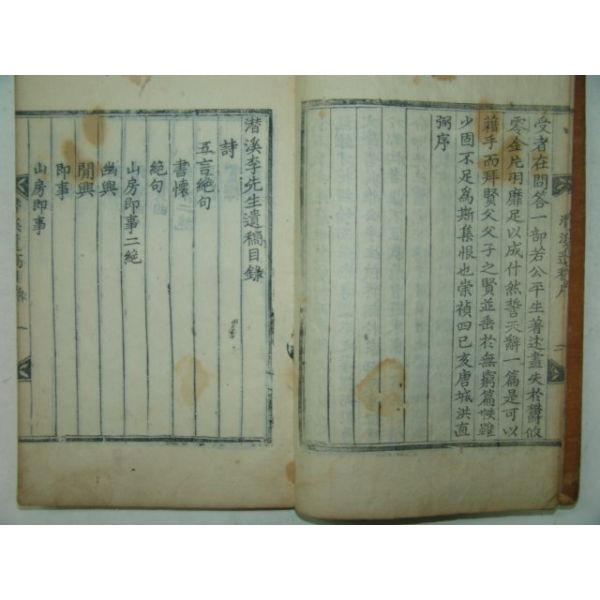 受者在問答一部若公平生著述盡失於鬱攸
零金片明靡足以成什然誓天辭一篇是可以
藉手而拜賢父父子之賢並垂於無窮篇帙雖
少固不足為斯集恨也崇禎四己亥唐城洪直
弼序
潛溪遺稿序
二
潛溪李先生遺稿目錄
詩
五言絕句
書懷
絕句
山房即事二絕
幽興
閒興
即事
山房即事
潛溪遺稿目錄
一